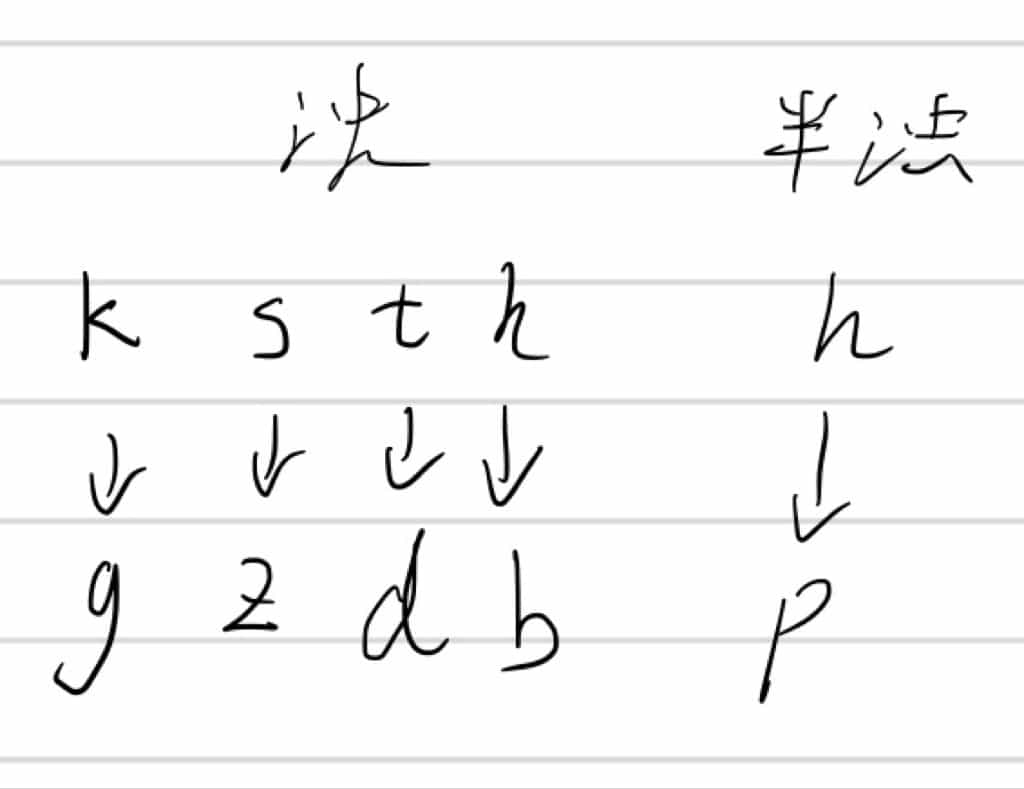 浊 半浊
k s t h h
↓ ↓ ↓ ↓ ↓
g z d b p